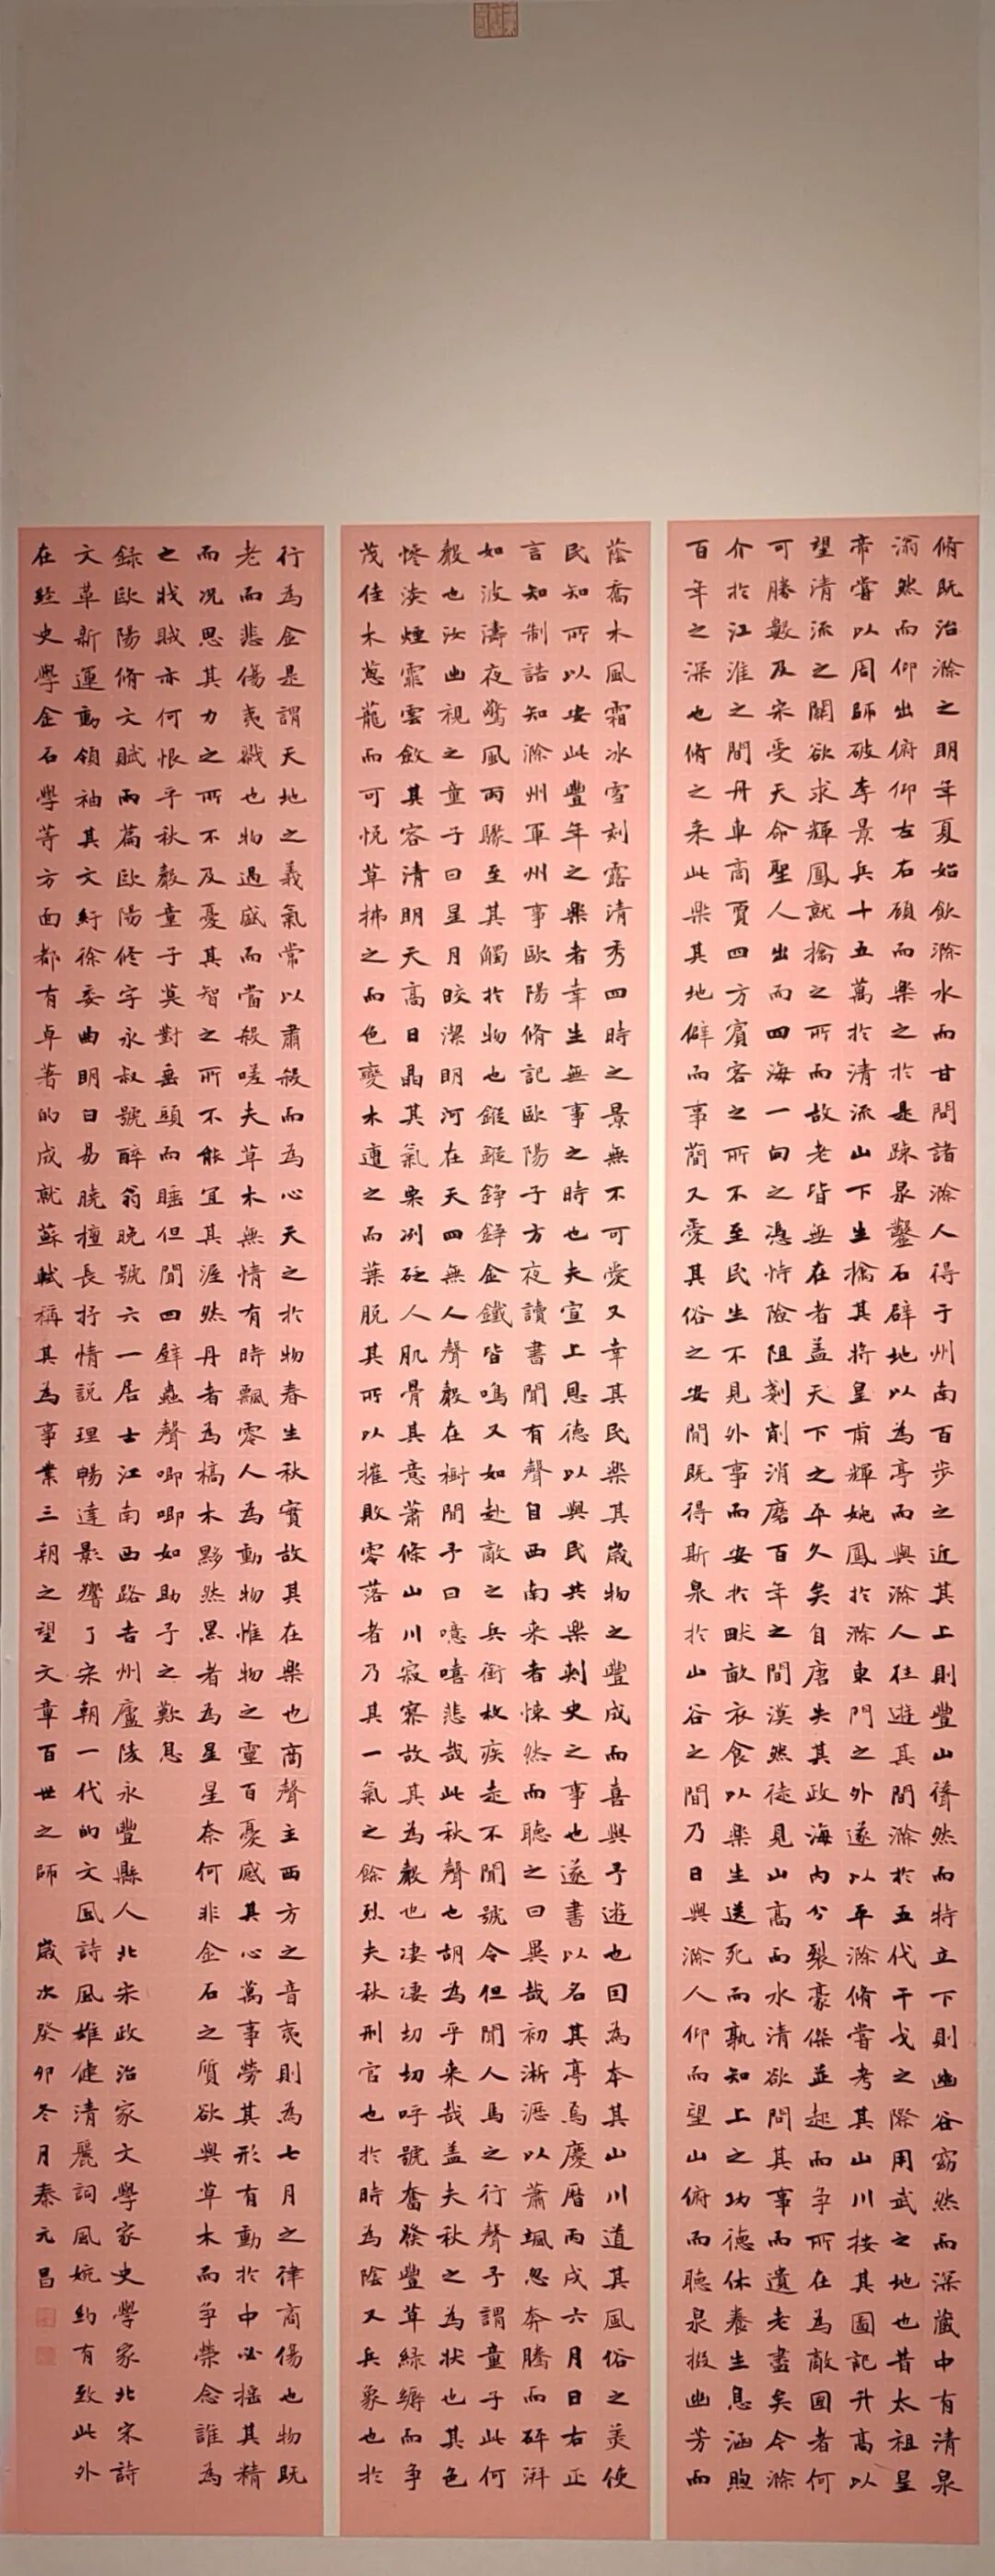 脩既治滁之明年夏始飲滁水而甘問諸滁人得于州南百步之近其上則豐山聳然而特立下則幽谷窈然而深藏中有清泉
滃然而仰出俯仰左右顧而樂之於是疎泉鑿石辟地以為亭而與滁人往遊其間滁於五代干戈之際用武之地也昔太祖皇
帝嘗以周師破李景兵十五萬於清流山下生擒其將皇甫輝姚鳳於滁東門之外遂以平滁脩嘗考其山川按其圖記升高以
望清流之關欲求輝鳳就擒之所而故老皆無在者蓋天下之平久矣自唐失其政海內分裂豪傑並起而爭所在為敵國者何
可勝數及宋受天命聖人出而四海一向之憑恃險阻剗削消磨百年之間漠然徒見山高而水清欲問其事而遺老盡矣今滁
介於江淮之間舟車商賈四方賓客之所不至民生不見外事而安於畎畝衣食以樂生送死而孰知上之功德休養生息涵煦
百年之深也脩之来此樂其地僻而事簡又愛其俗之安閒既得斯泉於山谷之間乃日與滁人仰而望山俯而聽泉掇幽芳而
蔭喬木風霜冰雪刻露清秀四時之景無不可愛又幸其民樂其歲物之豐成而喜與予遊也因為本其山川道其風俗之美使
民知所以安此豐年之樂者幸生無事之時也夫宣上恩德以與民共樂刺史之事也遂書以名其亭焉慶曆丙戌六月日右正
言知制誥知滁州軍州事歐陽脩記歐陽子方夜讀書聞有聲自西南来者悚然而聽之曰異哉初淅瀝以蕭颯忽奔騰而砰湃
如波濤夜驚風雨驟至其觸於物也鏦鏦錚錚金鐵皆鳴又如赴敵之兵銜枚疾走不聞號令但聞人馬之行聲予謂童子此何
聲也汝幽視之童子曰星月皎潔明河在天四無人聲聲在樹間予曰噫嘻悲哉此秋聲也胡為乎来哉蓋夫秋之為狀也其色
慘淡煙霏雲斂其容清明天高日晶其氣栗冽砭人肌骨其意蕭條山川寂寥故其為聲也凄凄切切呼號奮發豐草綠縟而爭
茂佳木蔥龍而可悅草拂之而色變木遭之而葉脫其所以摧敗零落者乃其一氣之餘烈夫秋刑官也於時為陰又兵象也於
行為金是謂天地之義氣常以肅殺而為心天之於物春生秋實故其在樂也商聲主西方之音夷則為七月之律商傷也物既
老而悲傷夷戮也物過盛而當殺嗟夫草木無情有時飄零人為動物惟物之靈百憂感其心萬事勞其形有動於中必搖其精
而况思其力之所不及憂其智之所不能宜其渥然丹者為槁木黟然黑者為星星奈何非金石之質欲與草木而爭榮念誰為
之戕賊亦何恨乎秋聲童子莫對垂頭而睡但聞四壁蟲聲唧唧如助予之歎息
録歐陽脩文賦两篇歐陽修字永叔號醉翁晚號六一居士江南西路吉州廬陵永豐縣人北宋政治家文學家史學家北宋詩
文革新運動領袖其文紆徐委曲明白易曉擅長抒情説理暢達影響了宋朝一代的文風詩風雄健清麗詞風婉約有致此外
在經史學金石學等方面都有卓著的成就蘇軾稱其為事業三朝之望文章百世之師 歲次癸卯冬月秦元昌